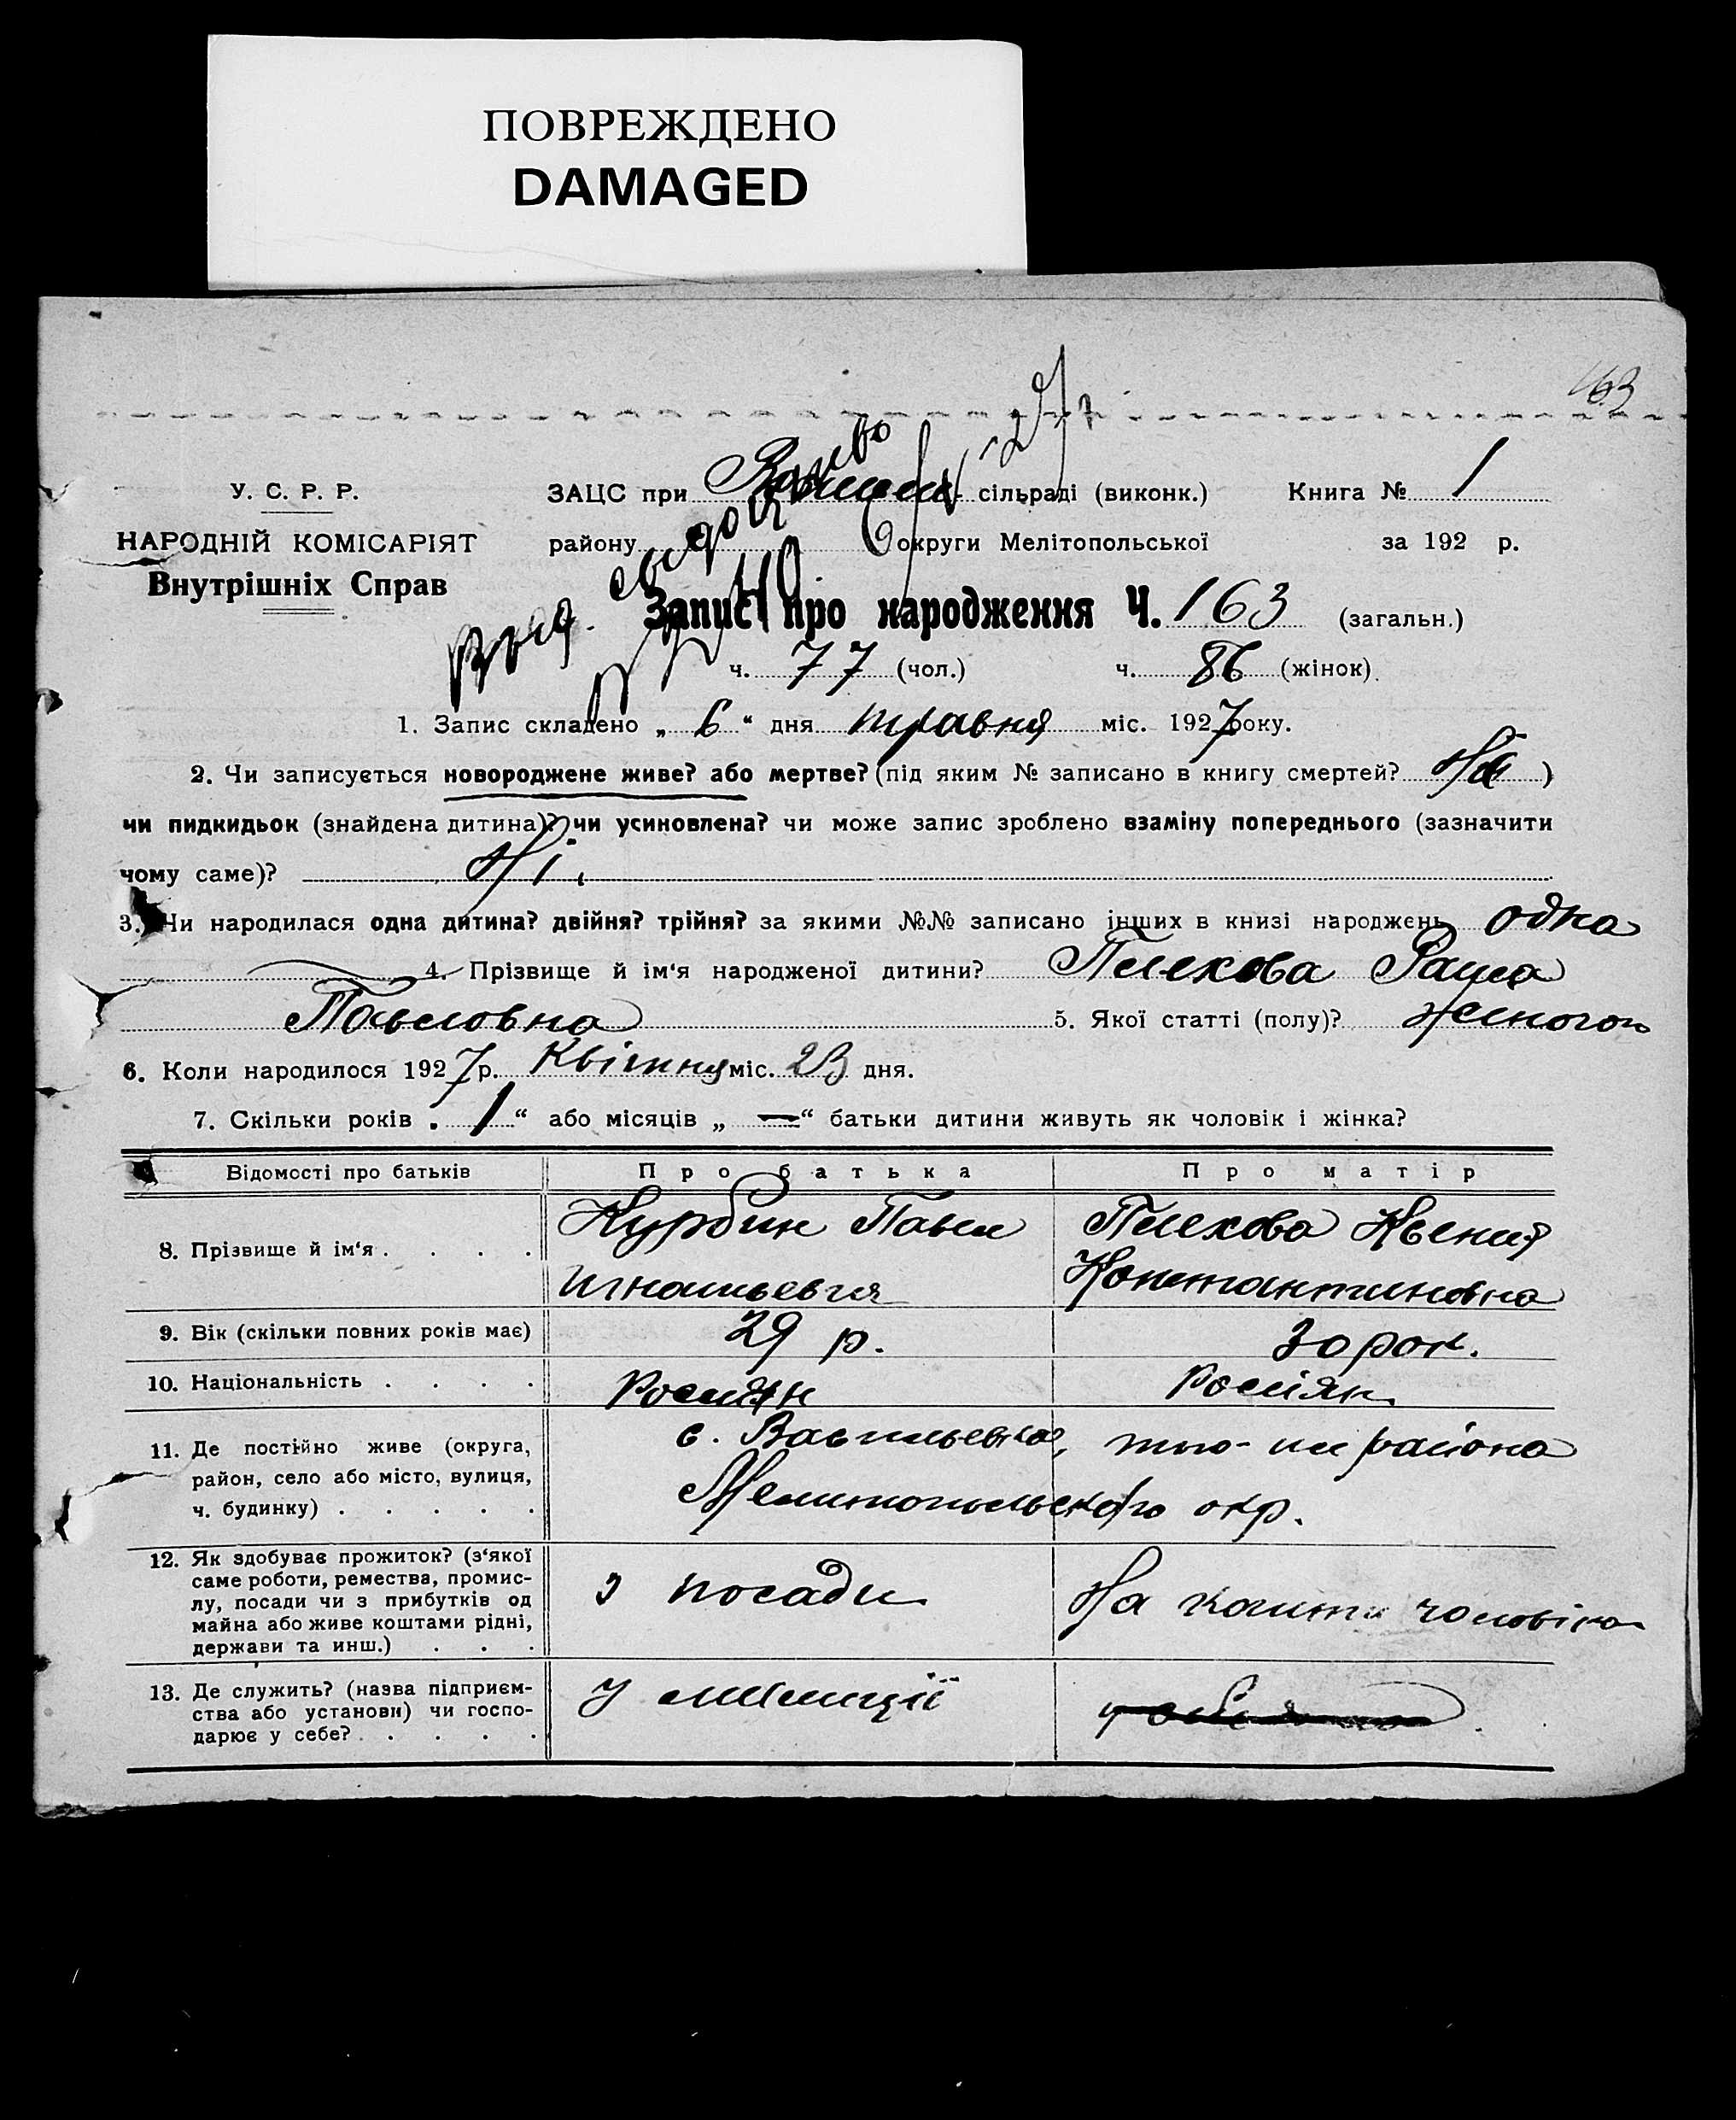 ПОВРЕЖДЕНО
DAMAGED
163
У. С. Р. Р.
НАРОДНІЙ КОМІСАРІЯТ
Внутрішніх Справ
ЗАЦС при сільраді (виконк.) Книга № 1
району округи Мелітопольської за 192 р.
Запис про народження Ч. 163 (загальн.)
ч. 77 (чол.) ч. 86 (жінок)
1. Запис складено „ 6 “ дня травня міс. 1927 року.
2. Чи записується новороджене живе? або мертве? (під яким № записано в книгу смертей? )
чи пидкидьок (знайдена дитина)? чи усиновлена? чи може запис зроблено взаміну попереднього (зазначити
чому саме)? Ні
3. Чи народилася одна дитина? двійня? трійня? за якими №№ записано інших в книзі народжень одна
4. Прізвище й ім'я народженої дитини? Плехова Раиса
Павловна 5. Якої статті (полу)? жіночої
6. Коли народилося 1927 р. Квітня міс. 23 дня.
7. Скільки років „ 1 “ або місяців „ — “ батьки дитини живуть як чоловік і жінка?
Відомості про батьків Про батька Про матір
8. Прізвище й ім'я . . . . Курбин Павел Плехова Ксения
Игнатьевич Константиновна
9. Вік (скільки повних років має) 29 р. 30 рок.
10. Національність . . . . Росіян Росіян
11. Де постійно живе (округа, с. Васильевка, района
район, село або місто, вулиця, Мелитопольского окр.
ч. будинку) . . . . .
12. Як здобуває прожиток? (з'якої
саме роботи, ремества, промис-
лу, посади чи з прибутків од з посади На кошти чоловіка
майна або живе коштами рідні,
держави та инш.) . . .
13. Де служить? (назва підприєм- у міліції
ства або установи) чи госпо-
дарює у себе? . . . .